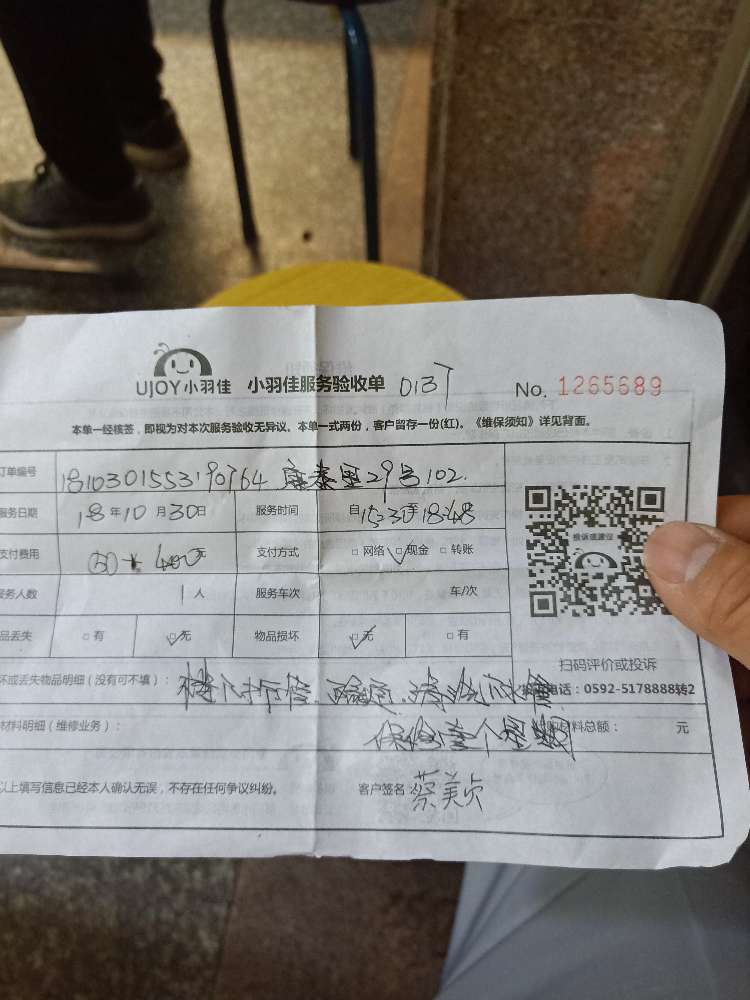 UJOY小羽佳 小羽佳服务验收单 013T No. 1265689
本单一经核签，即视为对本次服务验收无异议。本单一式两份，客户留存一份(红)。《维保须知》详见背面。
订单编号 康泰里29号102.
服务日期 18年10月30日 服务时间 自15:30至18:48
支付费用 元 支付方式 □网络 ☑现金 □转账
服务人数 1人 服务车次 车/次
品丢失 □有 ☑无 物品损坏 ☑无 □有
投诉或建议
扫码评价或投诉
坏或丢失物品明细（没有可不填）：
电话：0592-5178888转2
材料明细（维修业务）： 材料总额： 元
以上填写信息已经本人确认无误，不存在任何争议纠纷。 客户签名：蔡美贞